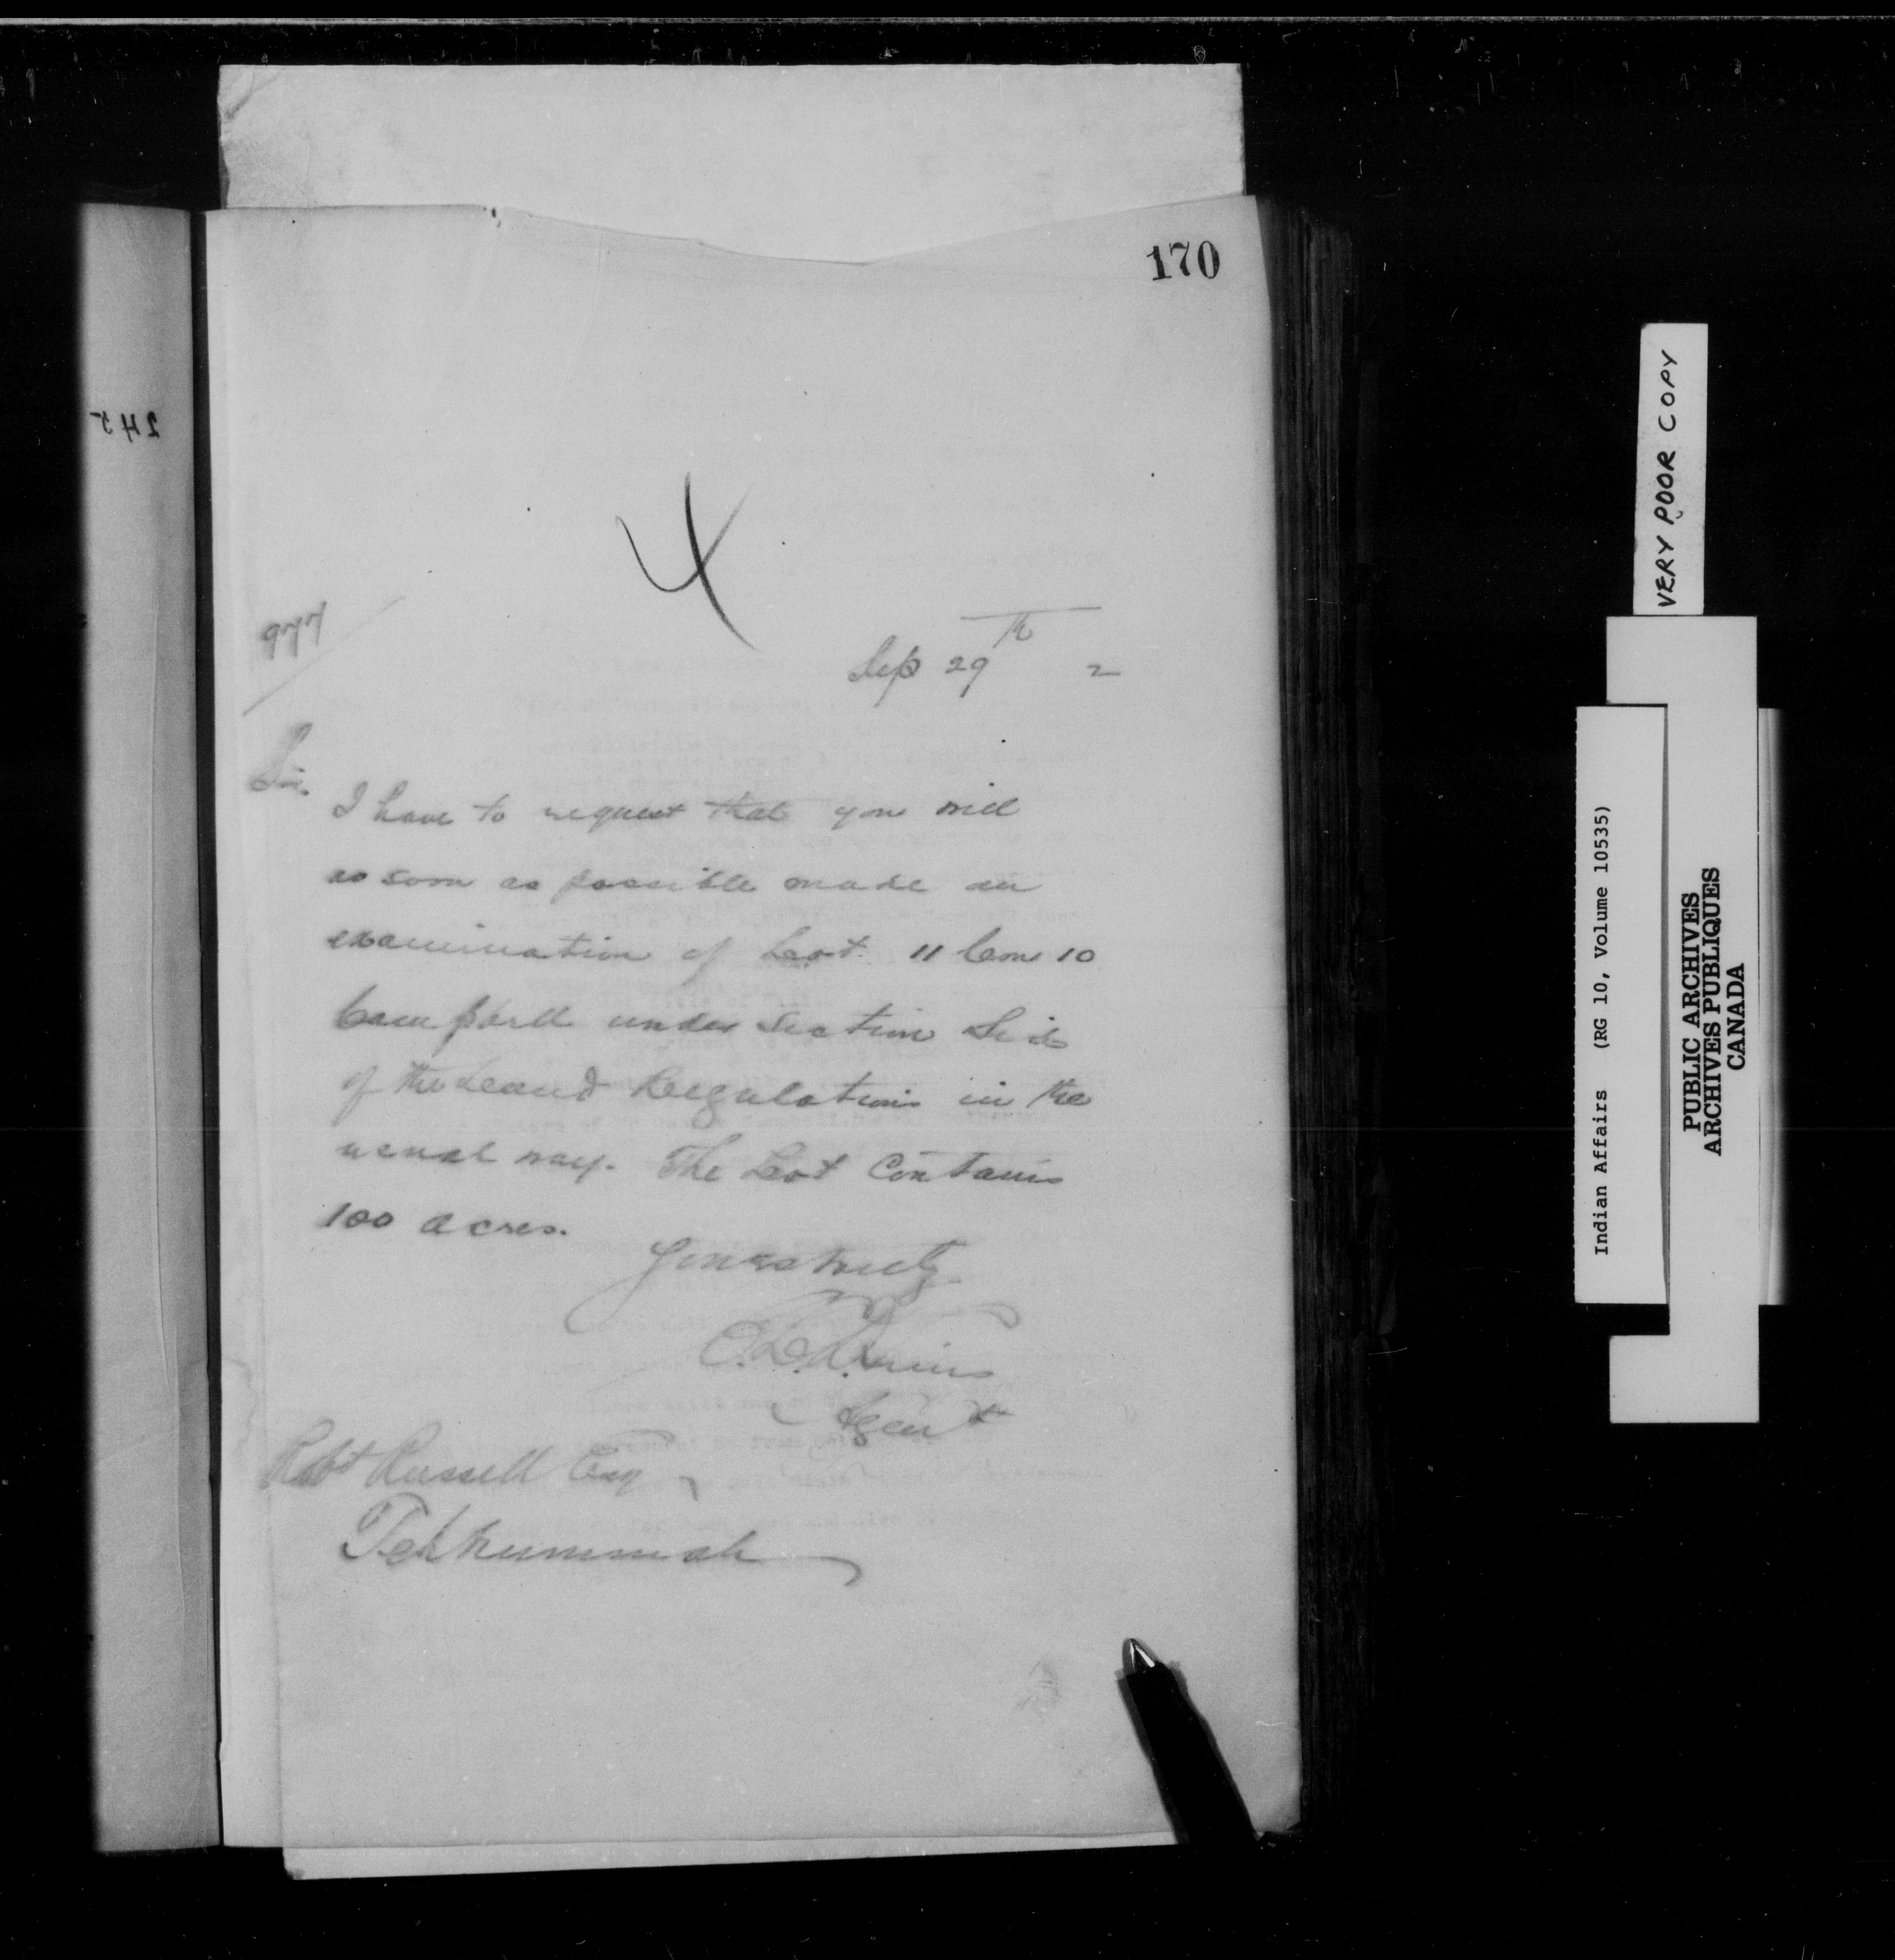 170
245
4
977
Sep 29th 2
Sir.
I have to request that you will
as soon as possible made an
examination of Lot 11 Con 10
Campbell under section
of the Land Regulations in the
usual way. The Lot Contains
100 acres.
Yours truly
Agent
Robt Russell Esq
Tehkummah
VERY POOR COPY
Indian Affairs (RG 10, Volume 10535)
PUBLIC ARCHIVES
ARCHIVES PUBLIQUES
CANADA